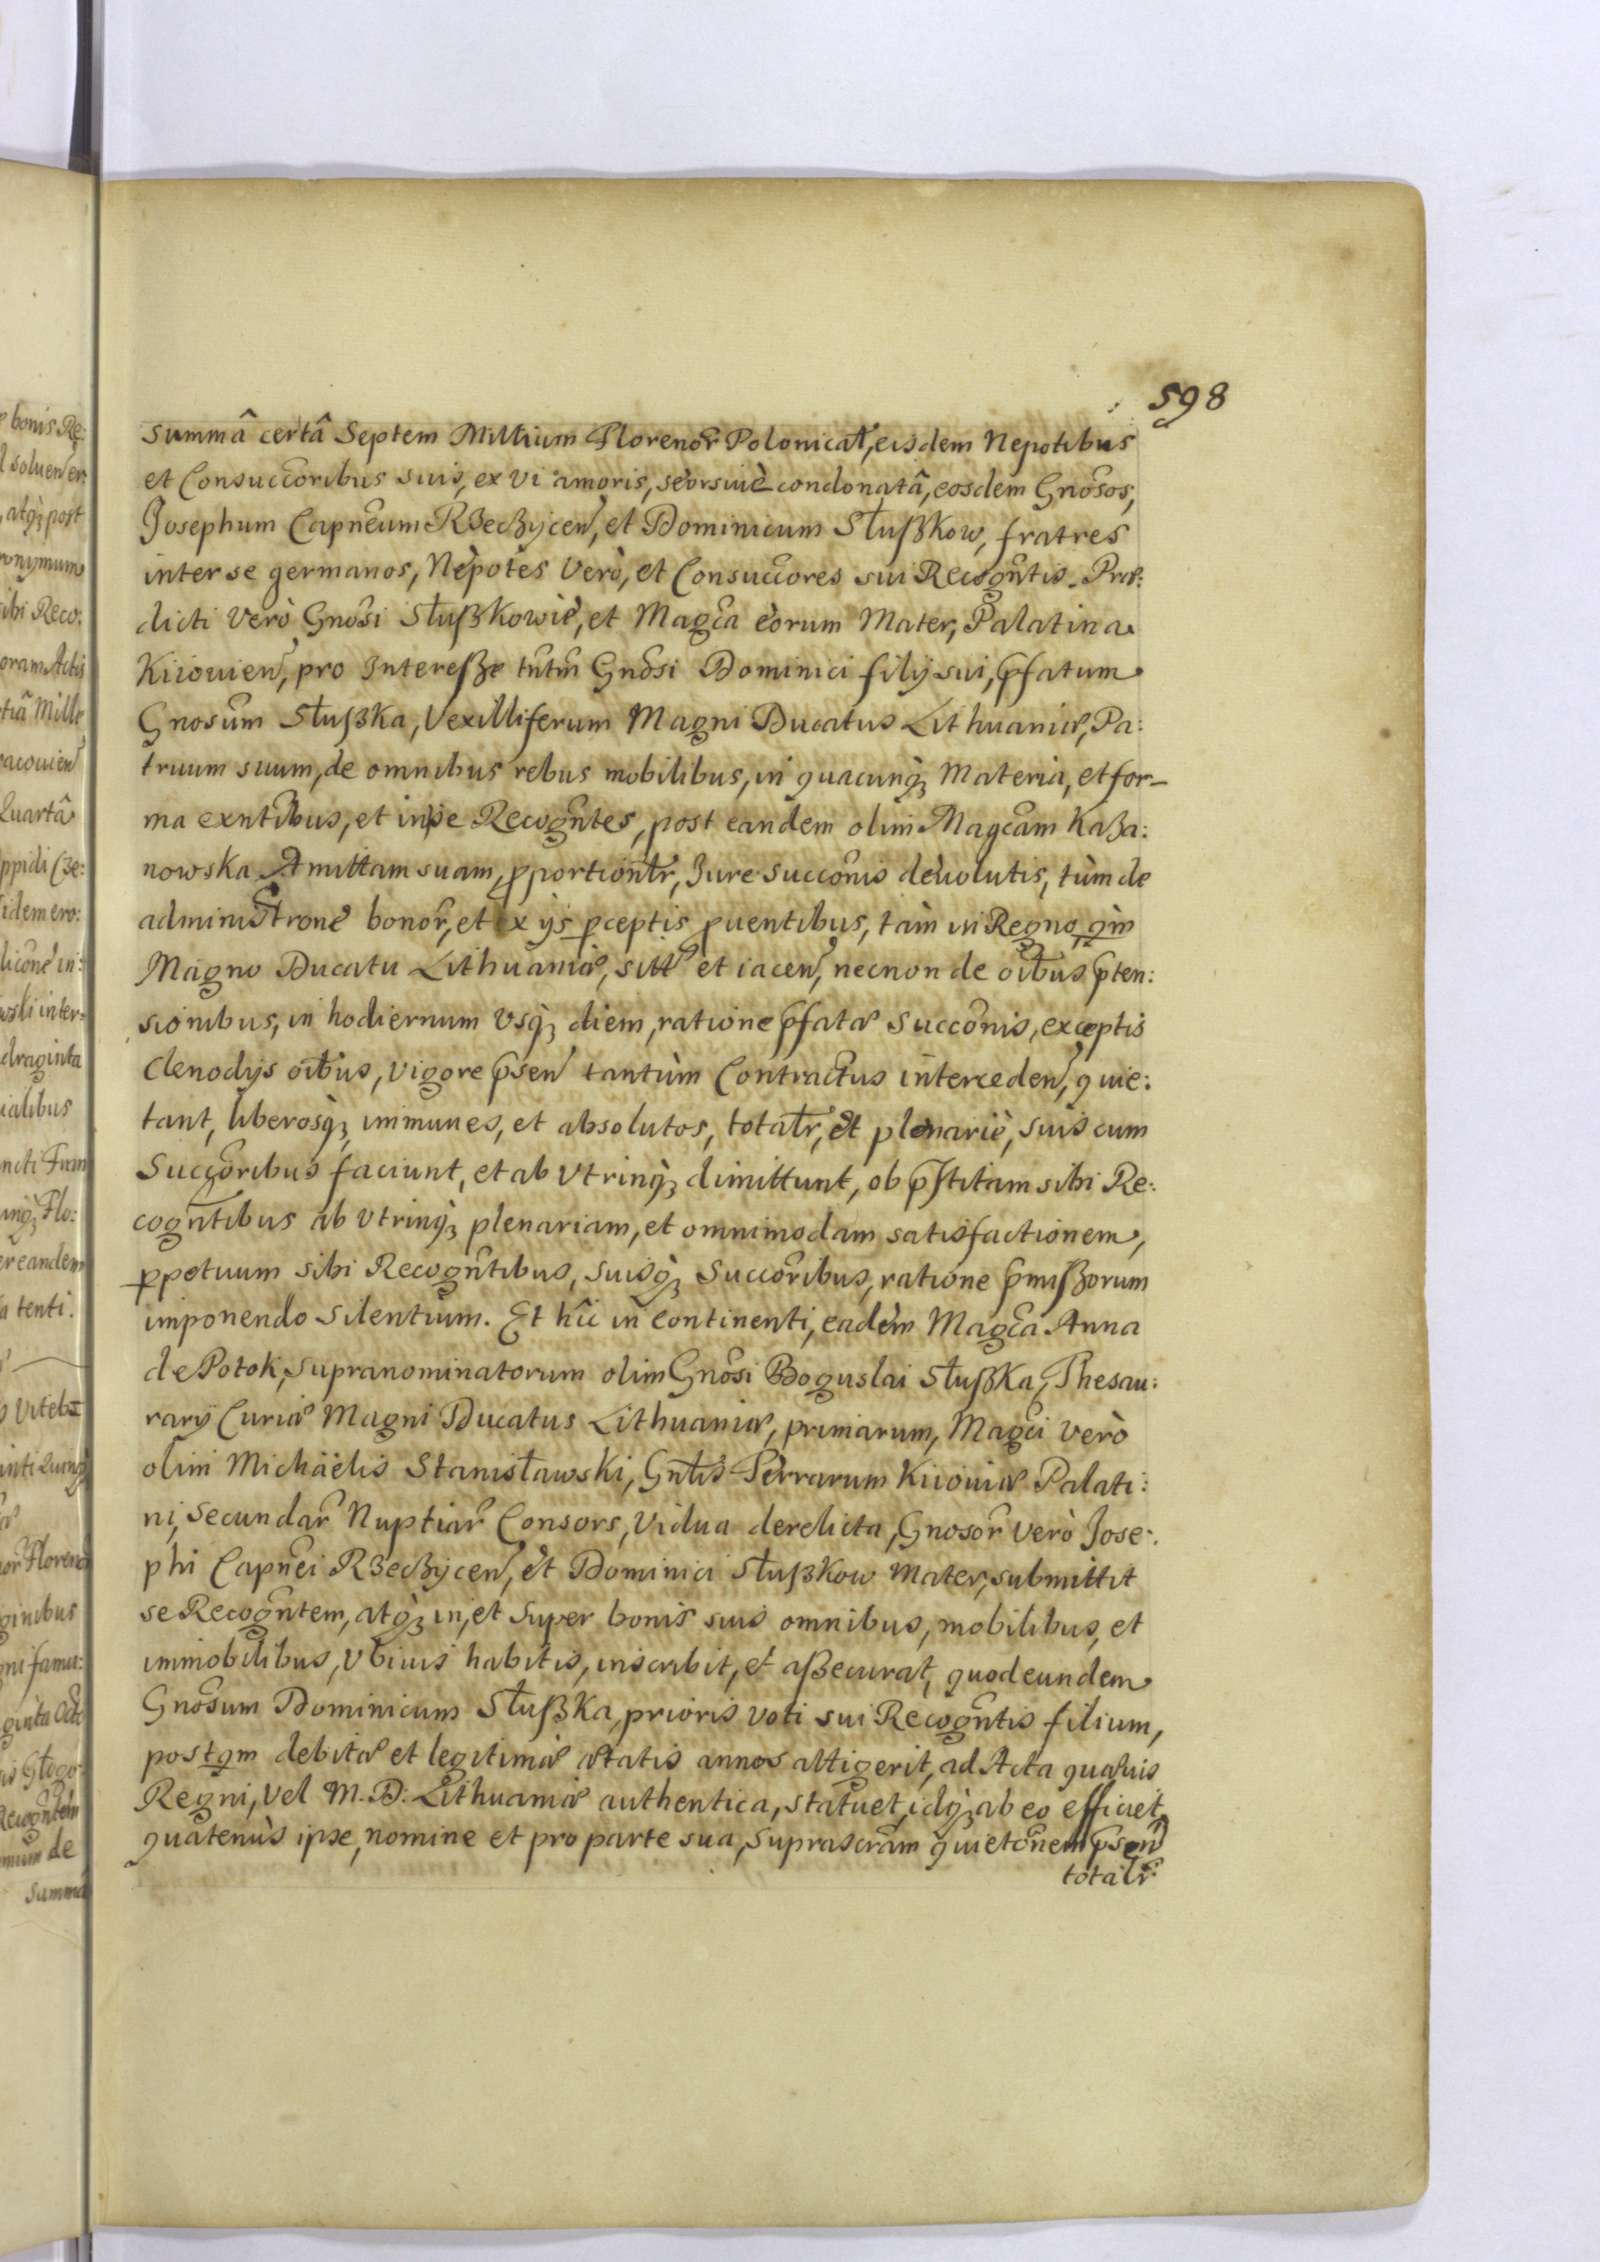 598
summâ certâ Septem Millium Florenor̃ Polonical̃, eisdem Nepotibus
et Consuccoribus suis, ex vi amoris, seorsiuè condonatâ, eosdem Gnosos,
Josephum Capneum Rzeczycen̄, et Dominicum Słuszkow, fratres
inter se germanos, Nepotes verò, et Consuccores sui Recogntis. Præ:
dicti verò Gnosi Słuszkowie, et Magca eorum Mater, Palatina
Kiiouien̄, pro Interesse tntm̃ Gnosi Dominici filij sui, p̃fatum
Gnosum Słuszka, Vexilliferum Magni Ducatus Lithuaniæ, Pa:
truum suum, de omnibus rebus mobilibus, in quacunq̃ Materia, et for-
ma exntibus, et in se Recogntes, post eandem olim Magcam Kaza:
nowska Amittam suam, p̱portiontr̃, Jure succonis deuolutis, tùm de
administrone bonor̃, et ex ijs p̱ceptis p̱uentibus, tàm in Regno, qm̃
Magno Ducatu Lithuaniæ, sitt̃ et iacen̄, necnon de oibus p̃ten:
sionibus, in hodiernum vsq̃ diem, ratione p̃fatæ succonis, exceptis
clenodijs oibus, vigore p̃sen̄ tantùm Contractus interceden̄, quie:
tant, liberosq̃, immunes, et absolutos, totalr̃, et plenariè, suis cum
Succoribus faciunt, et ab vtrinq̃ dimittunt, ob p̃stitam sibi Re:
cogntibus ab vtrinq̃ plenariam, et omnimodam satisfactionem,
p̱petuum sibi Recogntibus, suisq̃ Succoribus, ratione p̃missorum
imponendo silentium. Et hîc in continenti, eadem Magca Anna
de Potok, supranominatorum olim Gnosi Boguslai Słuszka, Thesau:
rarij Curiæ Magni Ducatus Lithuaniæ, primarum, Magci verò
olim Michäelis Stanisławski, Gntis Terrarum Kiiouiæ Palati:
ni, secundar̃ Nuptiar̃ Consors, Vidua derelicta, Gnosor̃ verò Jose:
phi Capnei Rzeczycen̄, et Dominici Słuszkow Mater, submittit
se Recogntem, atq̃ in, et super bonis suis omnibus, mobilibus, et
immobilibus, vbiuis habitis, inscribit, et assecurat, quod eundem
Gnosum Dominicum Słuszka, prioris voti sui Recogntis filium,
postqm̃ debitæ et legitimæ ætatis annos attigerit, ad Acta quæuis
Regni, vel M. D. Lithuaniæ authentica, statuet, idq̃ ab eo efficiet,
quatenùs ipse, nomine et pro parte sua, suprascram quietonem p̃sen̄
totalr̃